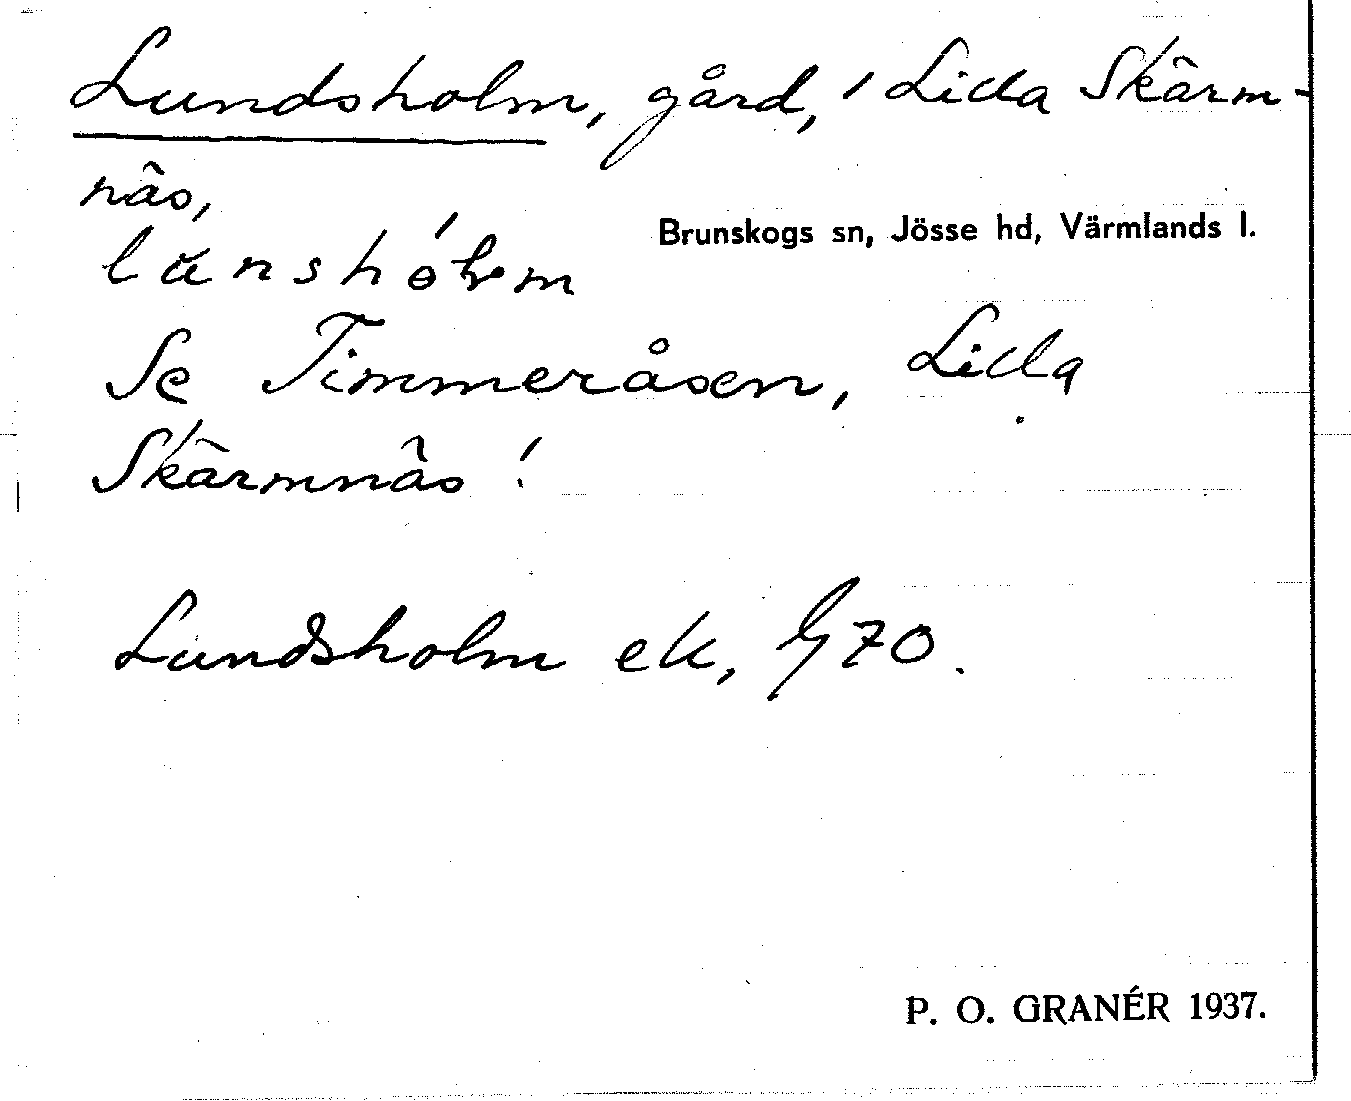 Lundsholm, gård, i Lilla Skärm-
näs,
Brunskogs sn, Jösse hd, Värmlands l.
Se Timmeråsen, Lilla
Skärmnäs!
Lundsholm ek, G 70.
P. O. GRANÉR 1937.